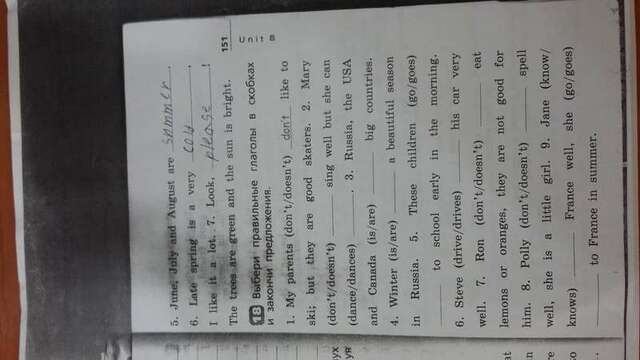 5. June, July and August are summer.
6. Late spring is a very cold,
I like it a lot. 7. Look, please!
The trees are green and the sun is bright.
151
Unit 8
18 Выбери правильные глаголы в скобках
и закончи предложения.
1. My parents (don't/doesn't) don't like to
ski; but they are good skaters. 2. Mary
(don't/doesn't) ______ sing well but she can
(dance/dances) ______. 3. Russia, the USA
and Canada (is/are) ______ big countries.
4. Winter (is/are) ______ a beautiful season
in Russia. 5. These children (go/goes)
______ to school early in the morning.
6. Steve (drive/drives) ______ his car very
well. 7. Ron (don't/doesn't) ______ eat
lemons or oranges, they are not good for
him. 8. Polly (don't/doesn't) ______ spell
well, she is a little girl. 9. Jane (know/
knows) ______ France well, she (go/goes)
______ to France in summer.